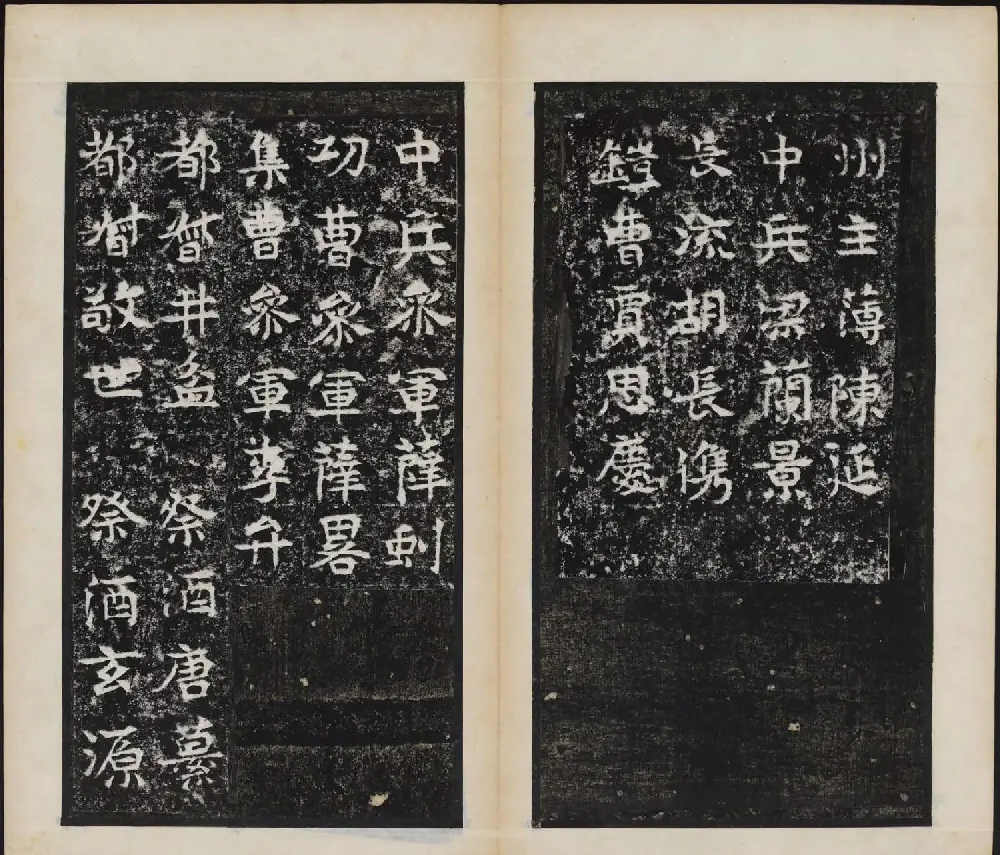 州主薄陳延
中兵梁蘭景
長流胡長儁
鎧曹賈思慶
中兵參軍薛
功曹參軍薛畧
集曹參軍弁
都督井孟 祭酒唐
都督敬世 祭酒玄源